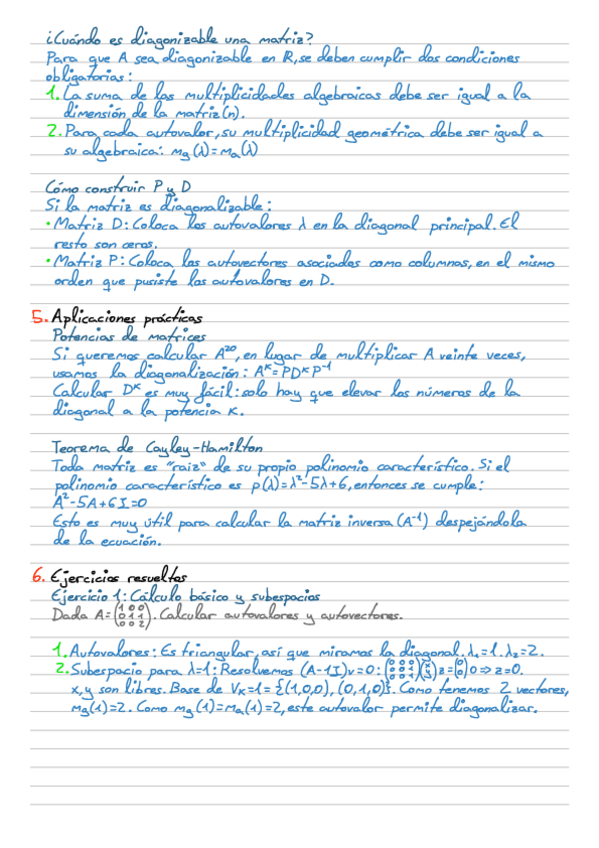 ¿Cuándo es diagonizable una matriz?
Para que A sea diagonizable en R, se deben cumplir dos condiciones
obligatorias:
1. La suma de las multiplicidades algebraicas debe ser igual a la
dimensión de la matriz(n).
2. Para cada autovalor, su multiplicidad geométrica debe ser igual a
su algebraica: mg(λ)=ma(λ)
Cómo construir P y D
Si la matriz es diagonalizable:
• Matriz D: Coloca los autovalores λ en la diagonal principal. El
resto son ceros.
• Matriz P: Coloca los autovectores asociados como columnas, en el mismo
orden que pusiste los autovalores en D.
5. Aplicaciones prácticas
Potencias de matrices
Si queremos calcular A²⁰, en lugar de multiplicar A veinte veces,
usamos la diagonalización: Aᴷ=PDᴷP⁻¹
Calcular Dᴷ es muy fácil: solo hay que elevar los números de la
diagonal a la potencia K.
Teorema de Cayley-Hamilton
Toda matriz es "raiz" de su propio polinomio característico. Si el
polinomio característico es p(λ)=λ²-5λ+6, entonces se cumple:
A²-5A+6I=0
Esto es muy útil para calcular la matriz inversa (A⁻¹) despejándola
de la ecuación.
6. Ejercicios resueltos
Ejercicio 1: Cálculo básico y subespacios
Dada A=(1 0 0 / 0 1 1 / 0 0 2). Calcular autovalores y autovectores.
1. Autovalores: Es triangular, así que miramos la diagonal. λ₁=1. λ₂=2.
2. Subespacio para λ=1: Resolvemos (A-1I)v=0: (0 0 0 / 0 0 1 / 0 0 1)(x / y / z)=(0 / 0 / 0) ⇒ z=0.
x,y son libres. Base de Vκ=1= {(1,0,0), (0,1,0)}. Como tenemos 2 vectores,
mg(1)=2. Como mg(1)=ma(1)=2, este autovalor permite diagonalizar.